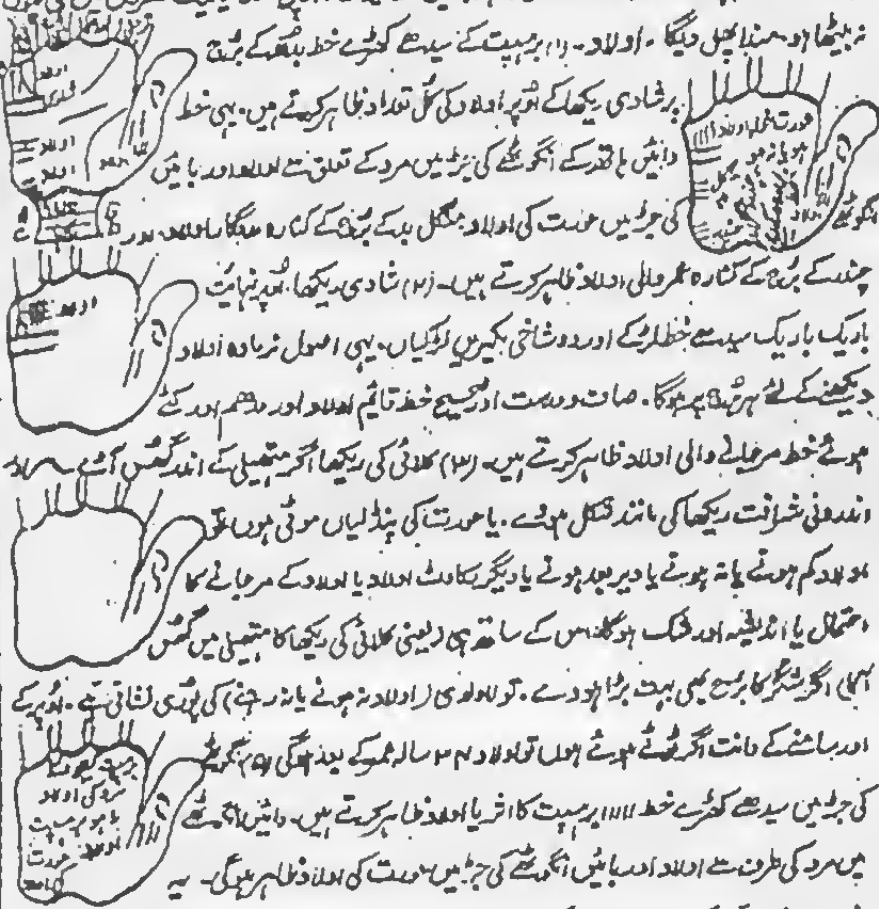 نہ بیٹھا ہو۔ مندا پھل دیگا ۔ اولاد ۔ (۱) برہسپت کے سیدھے کھڑے خط بدھ کے برج
پر شادی ریکھا کے اوپر اولاد کی کل تعداد ظاہر کرتے ہیں۔ یہی خط
دائیں ہاتھ کے انگوٹھے کی جڑ میں مرد کے تعلق سے اولاد اور بائیں
انگوٹھے کی جڑ میں عورت کی اولاد منگل بد کے برج کے کنارہ
چندر کے برج کے کنارہ عمر والی اولاد ظاہر کرتے ہیں۔ (۲) شادی ریکھا اوپر نہایت
باریک باریک سیدھے خط لڑکے اور دو شاخی لکیریں لڑکیاں۔ یہی اصول زیادہ اولاد
دیکھنے کے لئے ہر برج پر ہوگا۔ صاف و درست اور صحیح خط قائم اولاد اور مدھم اور کٹے
ہوئے خط مر جانے والی اولاد ظاہر کرتے ہیں۔ (۳) کلائی کی ریکھا اگر ہتھیلی کے اندر گھس آئے
اندرونی شرافت ریکھا کی مانند شکل ہووے ۔ یا عورت کی پنڈلیاں موٹی ہوں تو
اولاد کم ہونے یا نہ ہونے یا دیر بعد ہونے یا دیگر رکاوٹ اولاد یا اولاد کے مر جانے کا
احتمال یا اندیشہ اور شک ہوگا۔ اس کے ساتھ ہی (یعنی کلائی کی ریکھا کا ہتھیلی میں گھس
اگر شکر کا برج بھی بہت بڑا ہووے ۔ تو لاولدی (اولاد نہ ہونے یا نہ رہنے) کی پوری نشانی ہے ۔ اوپر کے
اور سامنے کے دانت اگر ٹوٹے ہوئے ہوں تو اولاد ۳۴ سالہ عمر کے بعد ہوگی انگوٹھے
کی جڑ میں سیدھے کھڑے خط ۱۱۱۱ برہسپت کا اثر یا اولاد ظاہر کرتے ہیں۔ دائیں انگوٹھے
میں مرد کی طرف سے اولاد اور بائیں انگوٹھے کی جڑ میں عورت کی اولاد ظاہر ہوگی۔ یہ
اولاد
اولاد
اولاد
اولاد
برہسپت
مرد کی اولاد
برہسپت
عورت